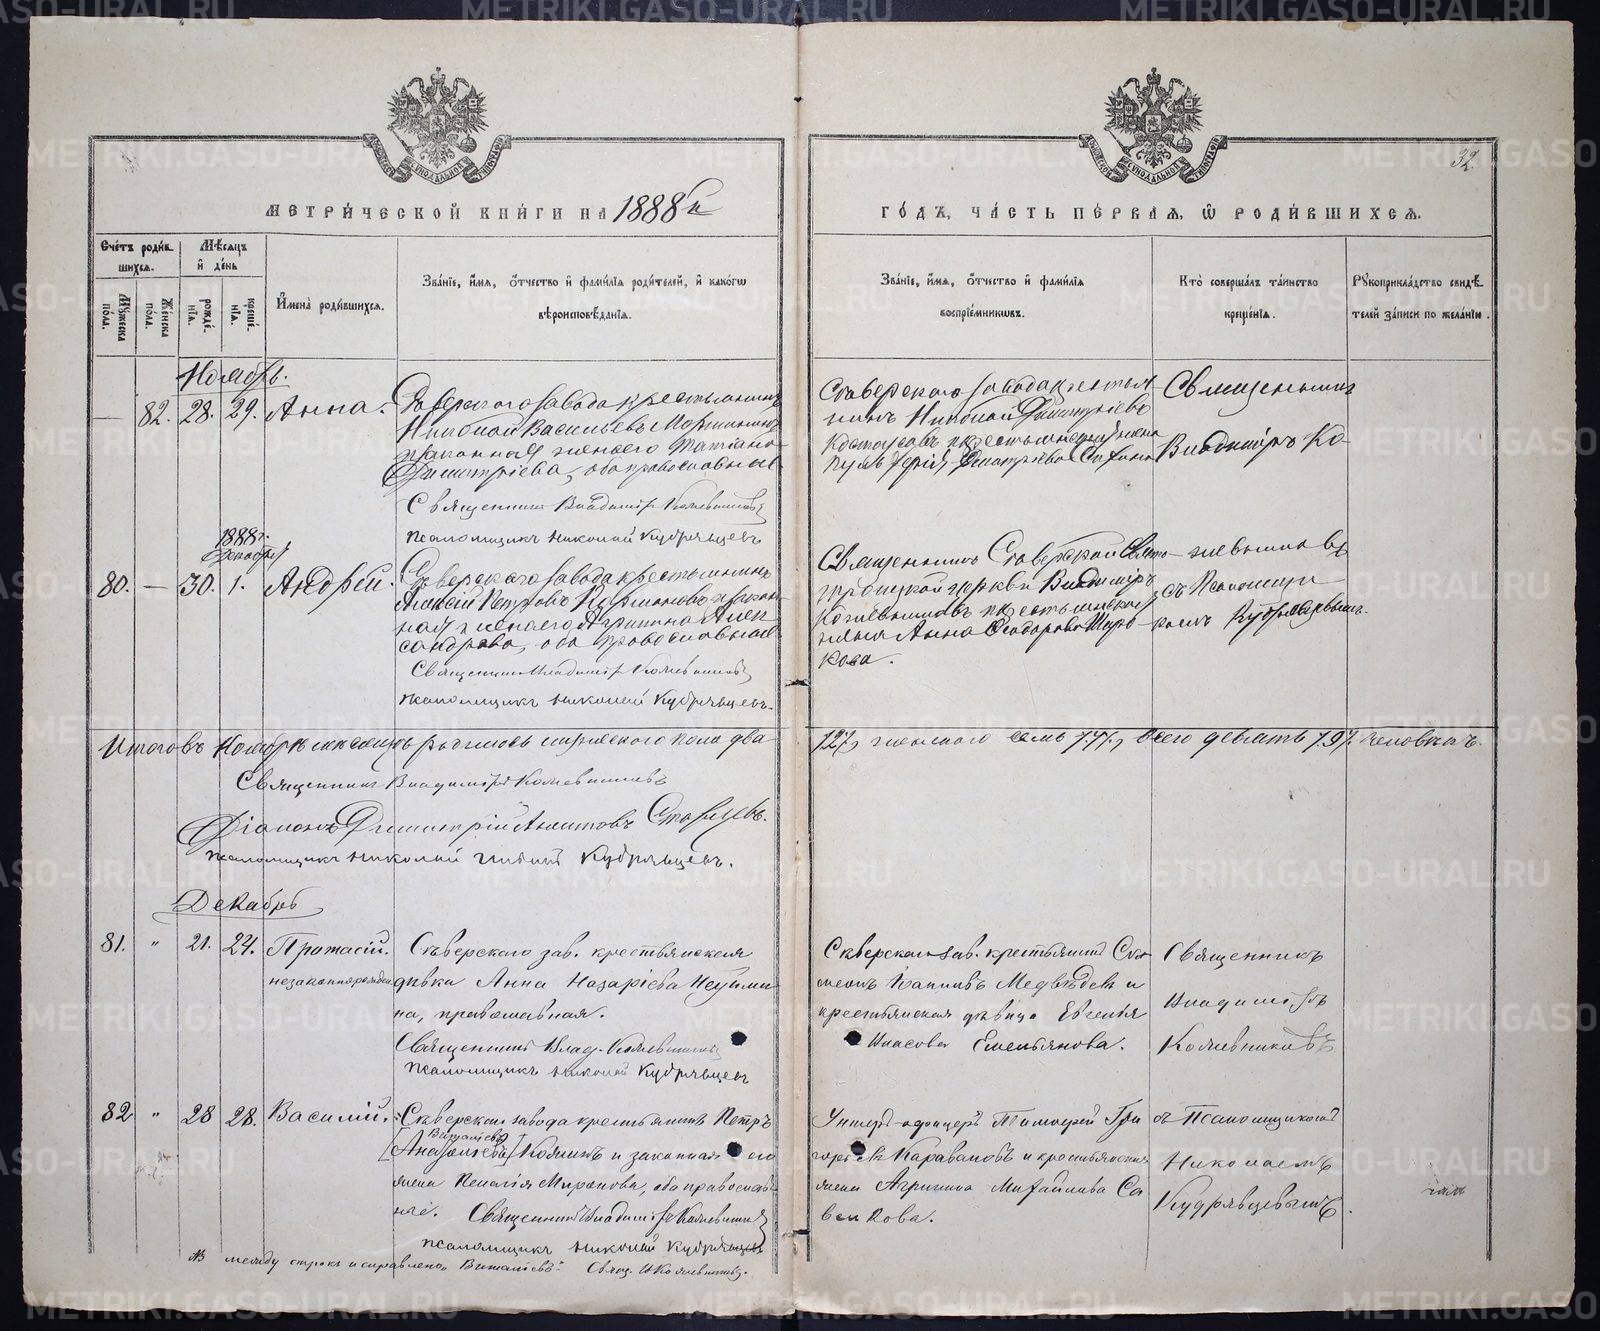 МЕТРИЧЕСКОЙ КНИГИ НА 1888й
ГОДЪ, ЧАСТЬ ПЕРВАЯ, Ѡ РОДИВШИХСЯ.
32
Счетъ родив-
шихся.
Мѣсяцъ
и день
Мужеска
пола.
Женска
пола.
рожде-
нія.
креще-
нія.
Имена родившихся.
Званіе, имя, отчество и фамилія родителей, и какогѡ
вѣроисповѣданія.
Званіе, имя, отчество и фамилія
воспріемниковъ.
Кто совершалъ таинство
крещенія.
Рукоприкладство свидѣ-
телей записи по желанію.
Ноябрь.
— 82. 28. 29. Анна.
Сѣверскаго завода крестьянинъ
Николай Васильевъ
законная жена его Татіана
Димитріева, оба православные
Священникъ Владиміръ Кожевниковъ
Псаломщикъ Николай Кудрявцевъ
Сѣверскаго завода крестья-
нинъ Николай Димитріевъ
Священникъ
Владиміръ Ко-
1888 г.
Декабрь
80. — 30. 1. Андрей.
Сѣверскаго завода крестьянинъ
Алексій Петровъ и закон-
ная жена его Агрипина Алек-
сандрова, оба православные
Священникъ Владиміръ Кожевниковъ
Псаломщикъ Николай Кудрявцевъ.
Священникъ Сѣверской Свято-
троицкой церкви Владиміръ
Кожевниковъ и крестьянская
жена Анна Ѳеодорова
кова.
жевниковъ
съ Псаломщи-
комъ Кудрявцевым.
Итого въ Ноябрѣ мѣсяцѣ родилось мужескаго пола два
/2/, женскаго семь /7/, всего девять /9/ человѣкъ.
Священникъ Владиміръ Кожевниковъ
Діаконъ Димитрій Старцевъ.
Псаломщикъ Николай Кудрявцевъ.
Декабрь
81. " 21. 24. Протасій.
незаконнорожден
Сѣверскаго зав. крестьянская
дѣвка Анна Назаріева Неуйми-
на, православная.
Священникъ Влад. Кожевниковъ
Псаломщикъ Николай Кудрявцевъ
Сѣверскаго зав. крестьянинъ Си-
меонъ Медвѣдевъ и
крестьянская дѣвица Евгенія
Власова Емельянова.
Священникъ
Владиміръ
Кожевниковъ
82 " 28 28. Василій.
Сѣверскаго завода крестьянинъ Петръ
Виталіевъ
и законная его
жена Пелагія Миронова, оба православ-
ные. Священникъ Владиміръ Кожевниковъ
Псаломщикъ Николай Кудрявцевъ
Унтеръ-офицеръ Тимофей Гри-
горьевъ Каравановъ и крестьянская
жена Агрипина Михайлова Са-
венкова.
съ Псаломщикомъ
Николаемъ
Кудрявцевымъ.
NB между строкъ исправлено "Виталіевъ" Свящ. В Кожевниковъ.
METRIKI.GASO-URAL.RU